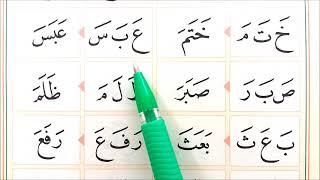 خَ تَ مَ خَتَمَ عَ بَ سَ عَبَسَ
صَ بَ رَ صَبَرَ لَ مَ ظَلَمَ
بَ عَ ثَ بَعَثَ رَ فَ عَ رَفَعَ